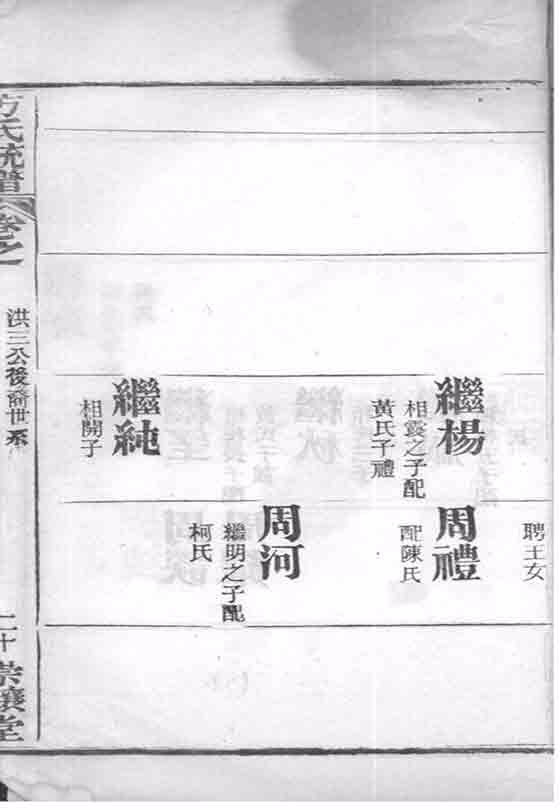 聘王女
繼楊
相霙之子配
黃氏子禮
周禮
配陳氏
周河
繼明之子配
柯氏
繼純
相開子
方氏統譜
卷之一
洪三公後裔世系
二十
崇讓堂